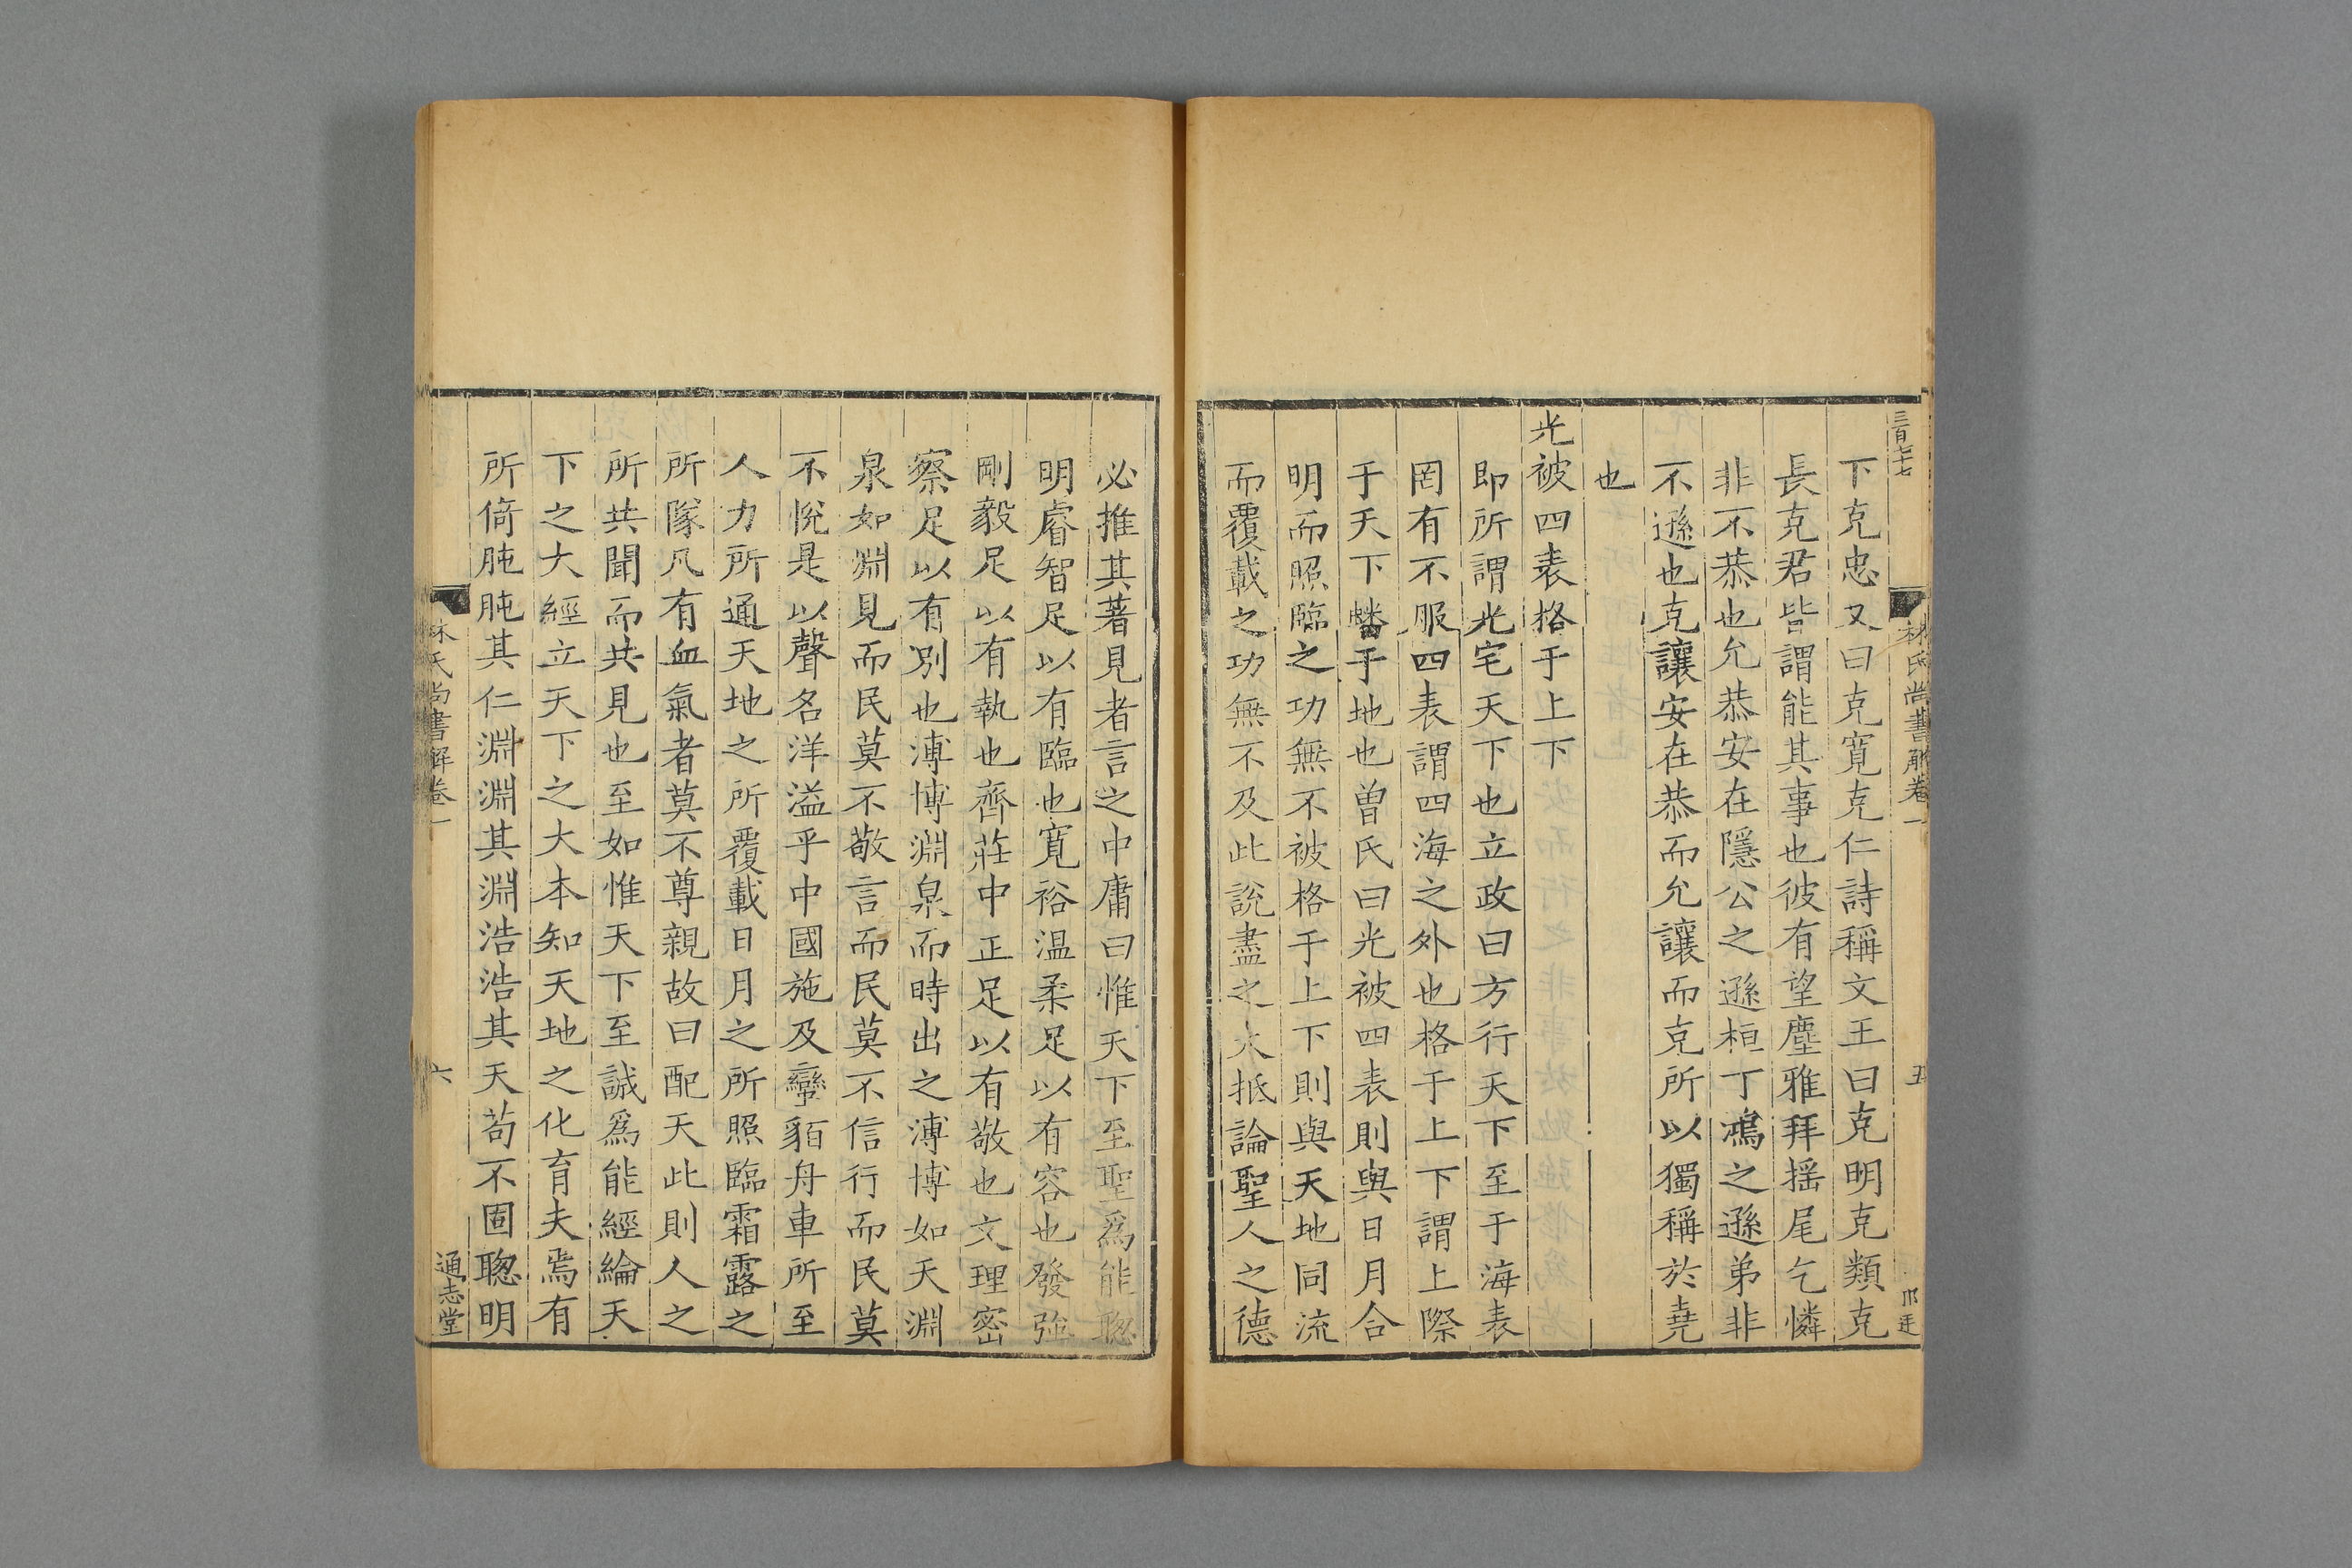 三百七十七
林氏尚書解卷一
五
下克忠又曰克寛克仁詩稱文王曰克明克類克
長克君皆謂能其事也彼有望塵雅拜揺尾乞憐
非不恭也允恭安在隱公之遜桓丁鴻之遜弟非
不遜也克讓安在恭而允讓而克所以獨稱於堯
也
光被四表格于上下
即所謂光宅天下也立政曰方行天下至于海表
罔有不服四表謂四海之外也格于上下謂上際
于天下蟠于地也曽氏曰光被四表則與日月合
明而照臨之功無不被格于上下則與天地同流
而覆載之功無不及此說盡之大抵論聖人之德
必推其著見者言之中庸曰惟天下至聖爲能聦
明睿智足以有臨也寛裕温柔足以有容也發強
剛毅足以有執也齊莊中正足以有敬也文理密
察足以有别也溥博淵泉而時出之溥博如天淵
泉如淵見而民莫不敬言而民莫不信行而民莫
不悅是以聲名洋溢乎中國施及蠻貊舟車所至
人力所通天地之所覆載日月之所照臨霜露之
所隊凡有血氣者莫不尊親故曰配天此則人之
所共聞而共見也至如惟天下至誠爲能經綸天
下之大經立天下之大本知天地之化育夫焉有
所倚肫肫其仁淵淵其淵浩浩其天茍不固聦明
林氏尚書解卷一
六
通志堂